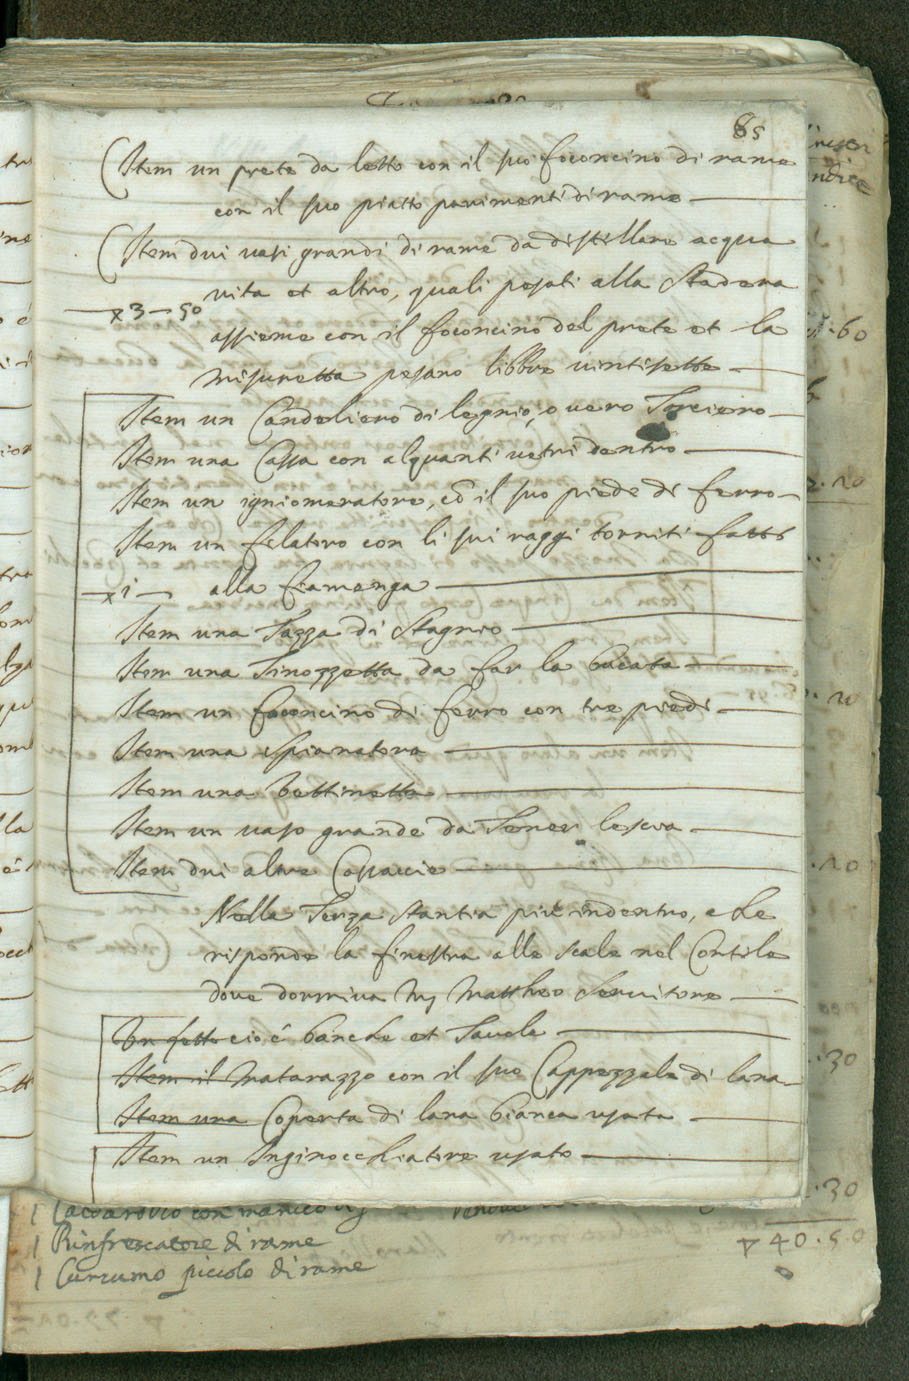 85
Item un prete da letto con il suo foconcino di rame
con il suo piatto parimenti di rame
Item dui vasi grandi di rame da distillare acqua
vita et altro, quali pesati alla Stadera
3-50
assieme con il foconcino del prete et la
misuretta pesano libbre vintisette
Item un Candeliero di legnio, o vero Torciero
Item una Cassa con alquanti vetri dentro
Item un igniomeratore, co il suo piede di ferro
Item un filatoro con li sui raggi torniti fatto
1 alla fiamenga
Item una Tazza di Stagnio
Item una Tinozzetta da far la bucata
Item un foconcino di ferro con tre piedi
Item una spianatora
Item una bettinella
Item un vaso grande da Tener lescia
Item dui altre Cassaccie
Nella Terza stantia più indentro, che
risponde la finestra alle scale nel Cortile
dove dormiva Mattheo Servitore
Un letto cioè banche et Tavole
Item il Matarazzo con il suo Cappezzale di lana
Item una Coperta di lana bianca usata
Item un Inginocchiatore usato
30
1 Rinfrescatore di rame
40.50
1 Cucumo piccolo di rame
60
10
30